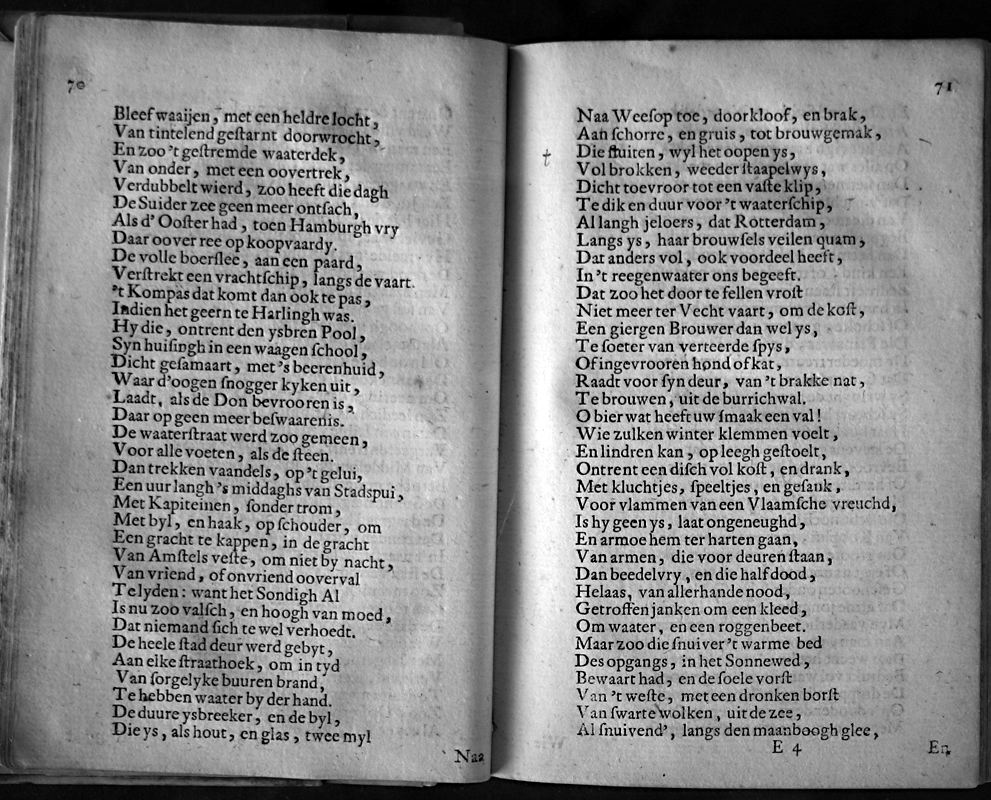 70
Bleef waaijen, met een heldre locht,
Van tintelend geſtarnt doorwrocht,
En zoo 't geſtremde waaterdek,
Van onder, met een oovertrek,
Verdubbelt wierd, zoo heeft die dagh
De Suider zee geen meer ontſach,
Als d' Ooſter had, toen Hamburgh vry
Daar oover ree op koopvaardy.
De volle boerſlee, aan een paard,
Verſtrekt een vrachtſchip, langs de vaart.
't Kompas dat komt dan ook te pas,
Indien het geern te Harlingh was.
Hy die, ontrent den ysbren Pool,
Syn huiſingh in een waagen ſchool,
Dicht geſamaart, met 's beerenhuid,
Waar d'oogen ſnogger kyken uit,
Laadt, als de Don bevrooren is,
Daar op geen meer beſwaarenis.
De waaterſtraat werd zoo gemeen,
Voor alle voeten, als de ſteen.
Dan trekken vaandels, op 't gelui,
Een uur langh 's middaghs van Stadspui,
Met Kapiteinen, ſonder trom,
Met byl, en haak, op ſchouder, om
Een gracht te kappen, in de gracht
Van Amſtels veſte, om niet by nacht,
Van vriend, of onvriend ooverval
Te lyden: want het Sondigh Al
Is nu zoo valſch, en hoogh van moed,
Dat niemand ſich te wel verhoedt.
De heele ſtad deur werd gebyt,
Aan elke ſtraathoek, om in tyd
Van ſorgelyke buuren brand,
Te hebben waater by der hand.
De duure ysbreeker, en de byl,
Die ys, als hout, en glas, twee myl
Naa
71
Naa Weeſop toe, doorkloof, en brak,
Aan ſchorre, en gruis, tot brouwgemak,
† Die ſluiten, wyl het oopen ys,
Vol brokken, weeder ſtaapelwys,
Dicht toevroor tot een vaſte klip,
Te dik en duur voor 't waaterſchip,
Al langh jeloers, dat Rotterdam,
Langs ys, haar brouwſels veilen quam,
Dat anders vol, ook voordeel heeft,
In 't reegenwaater ons begeeft.
Dat zoo het door te fellen vroſt
Niet meer ter Vecht vaart, om de koſt,
Een giergen Brouwer dan wel ys,
Te ſoeter van verteerde ſpys,
Of ingevrooren hond of kat,
Raadt voor ſyn deur, van 't brakke nat,
Te brouwen, uit de burrichwal.
O bier wat heeft uw ſmaak een val!
Wie zulken winter klemmen voelt,
En lindren kan, op leegh geſtoelt,
Ontrent een diſch vol koſt, en drank,
Met kluchtjes, ſpeeltjes, en geſank,
Voor vlammen van een Vlaamſche vreuchd,
Is hy geen ys, laat ongeneughd,
En armoe hem ter harten gaan,
Van armen, die voor deuren ſtaan,
Dan beedelvry, en die half dood,
Helaas, van allerhande nood,
Getroffen janken om een kleed,
Om waater, en een roggenbeet.
Maar zoo die ſnuiver 't warme bed
Des opgangs, in het Sonnewed,
Bewaart had, en de ſoele vorſt
Van 't weſte, met een dronken borſt
Van ſwarte wolken, uit de zee,
Al ſnuivend', langs den maanboogh glee,
E 4
En